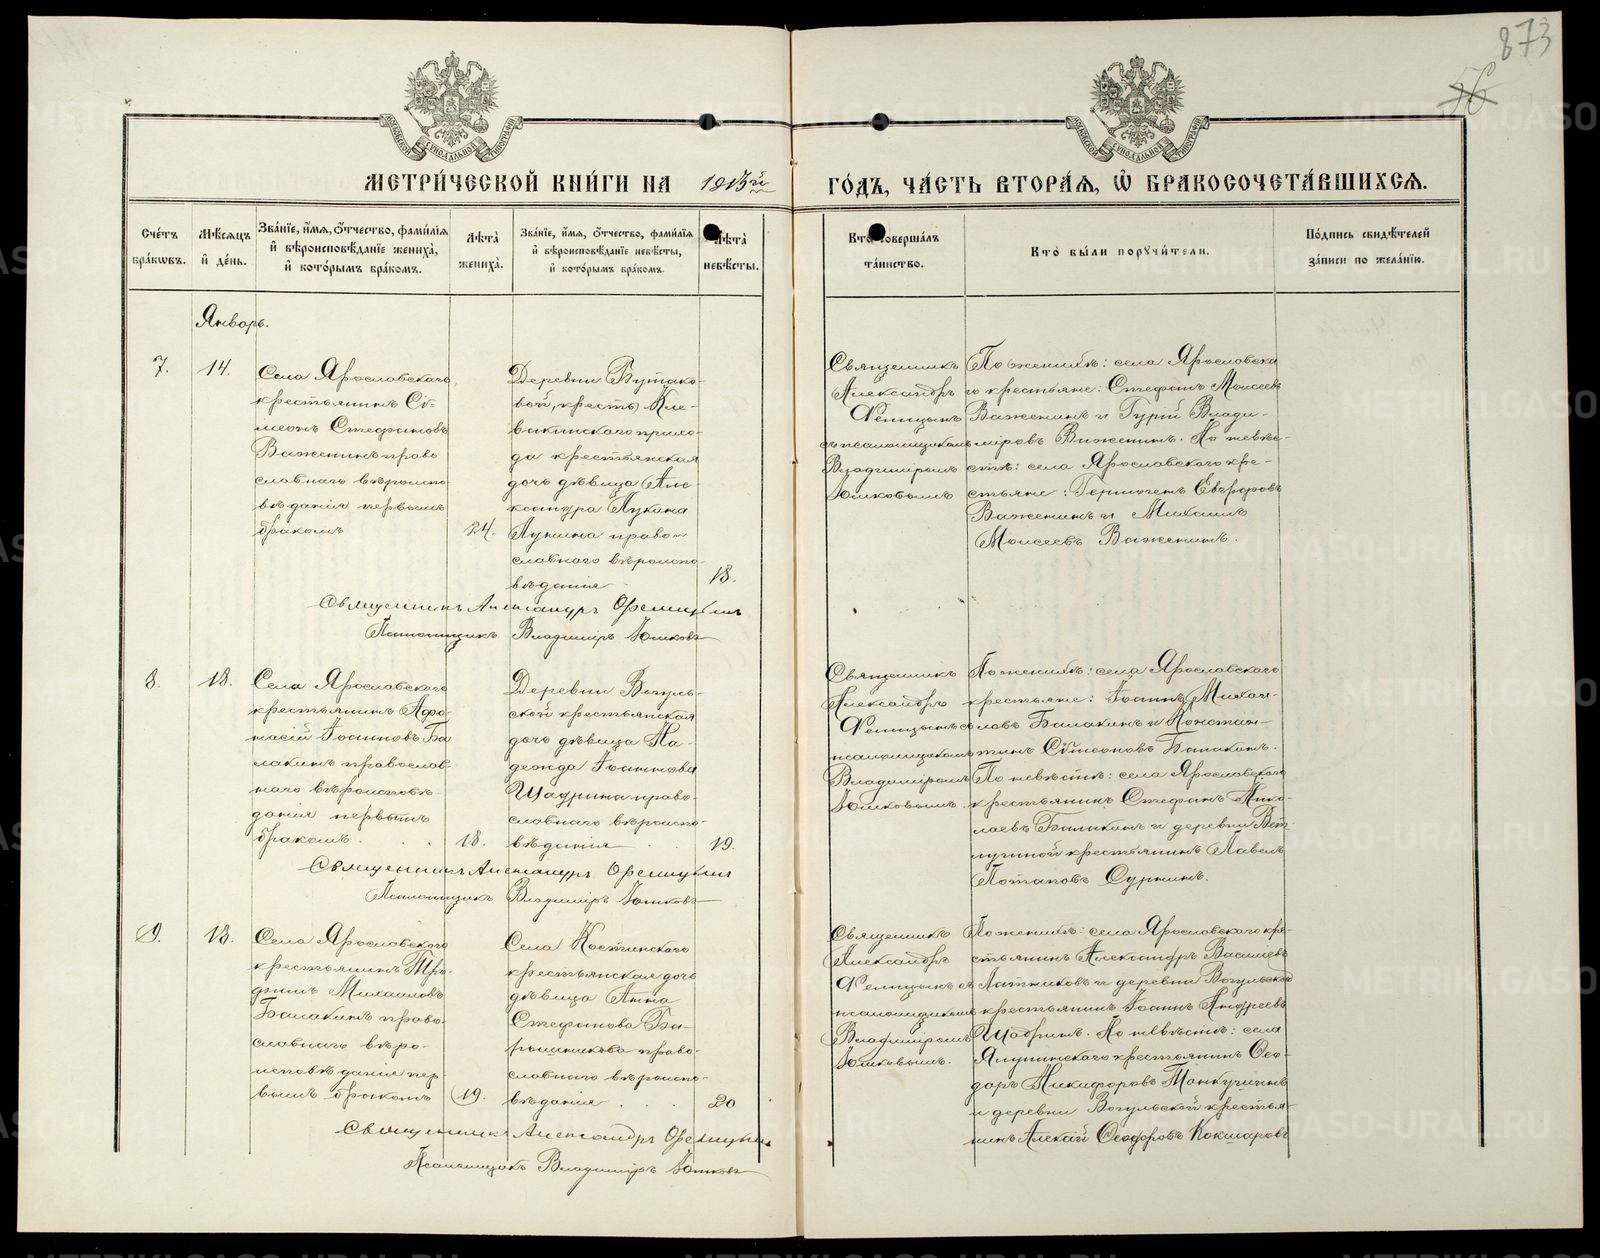 873
56
МОСКОВСКОЙ СѴНОДАЛЬНОЙ ТИПОГРАФІИ
МОСКОВСКОЙ СѴНОДАЛЬНОЙ ТИПОГРАФІИ
МЕТРИ́ЧЕСКОЙ КНИ́ГИ НА 1913й ГО́ДЪ, ЧА́СТЬ ВТОРА́Я, Ѽ БРАКОСОЧЕТА́ВШИХСЯ.
Сче́тъ бра́кѡвъ.
Мѣ́сяцъ и҆ де́нь.
Зва́нїе, и҆́мя, ѻ҆́тчество, фами́лїя и҆ вѣроисповѣ́данїе жениха̀, и҆ кото́рымъ бра́комъ.
Лѣ́та жениха̀.
Зва́нїе, и҆́мя, ѻ҆́тчество, фами́лїя и҆ вѣроисповѣ́данїе невѣ́сты, и҆ кото́рымъ бра́комъ.
Лѣ́та невѣ́сты.
Кто̀ соверша́лъ та́инство.
Кто̀ бы́ли порꙋчи́тели.
По́дпись свидѣ́телей за́писи по жела́нїю.
Январь.
7.
14.
Села Ярославскаго
крестьянинъ Сѵ-
меонъ Стефановъ
Важенинъ право
славнаго вѣроиспо-
вѣданія первымъ
бракомъ
24.
Деревни Бутако-
вой, (крестъ) Кле-
вакинскаго прихо-
да крестьянская
дочь дѣвица Але-
ксандра Лукина
Лунина право-
славнаго вѣроиспо-
вѣданія
18.
Священникъ
Александръ
Фелицынъ
съ псаломщикомъ
Владиміромъ
Юшковымъ
По женихѣ: села Ярославска
го крестьяне: Стефанъ Моисеевъ
Важенинъ и Гурій Влади-
міровъ Важенинъ. По невѣ-
стѣ: села Ярославскаго кре-
стьяне: Гермогенъ Евграфовъ
Важенинъ и Михаилъ
Моисеевъ Важенинъ.
Священникъ Александръ Фелицынъ
Псаломщикъ Владиміръ Юшковъ
8.
18.
Села Ярославскаго
крестьянинъ Афа-
насій Іоанновъ Ба
лакинъ православ-
наго вѣроисповѣ-
данія первымъ
бракомъ . . .
18.
Деревни Вогуль-
ской крестьянская
дочь дѣвица На-
дежда Іоаннова
Шадрина право-
славнаго вѣроиспо-
вѣданія . .
19.
Священникъ
Александръ
Фелицынъ съ
псаломщикомъ
Владиміромъ
Юшковымъ.
По женихѣ: села Ярославскаго
крестьяне: Іоаннъ Михаи-
ловъ Балакинъ и Констан-
тинъ Сѵмеоновъ Балакинъ.
По невѣстѣ: села Ярославскаго
крестьянинъ Стефанъ Нико-
лаевъ Балакинъ и деревни Вет-
лугиной крестьянинъ Павелъ
Потаповъ Суркинъ.
Священникъ Александръ Фелицынъ
Псаломщикъ Владиміръ Юшковъ
9.
18.
Села Ярославскаго
крестьянинъ
Михаиловъ
Балакинъ право-
славнаго вѣро-
исповѣданія пер
вымъ бракомъ
19.
Села Костинскаго
крестьянская дочь
дѣвица Анна
Стефанова
право-
славнаго вѣроиспо-
вѣданія . . .
20
Священникъ
Александръ
Фелицынъ съ
псаломщикомъ
Владиміромъ
Юшковымъ.
По женихѣ: села Ярославскаго кре-
стьянинъ Александръ Васильевъ
Латниковъ и деревни Вогульской
крестьянинъ Іоаннъ Андреевъ
Шадринъ. По невѣстѣ: села
крестьянинъ Ѳео-
доръ Никифоровъ
и деревни Вогульской крестья-
нинъ Алексій Ѳеодоровъ Кокшаровъ
Священникъ Александръ Фелицынъ
Псаломщикъ Владиміръ Юшковъ
METRIKI.GASO-URAL.RU